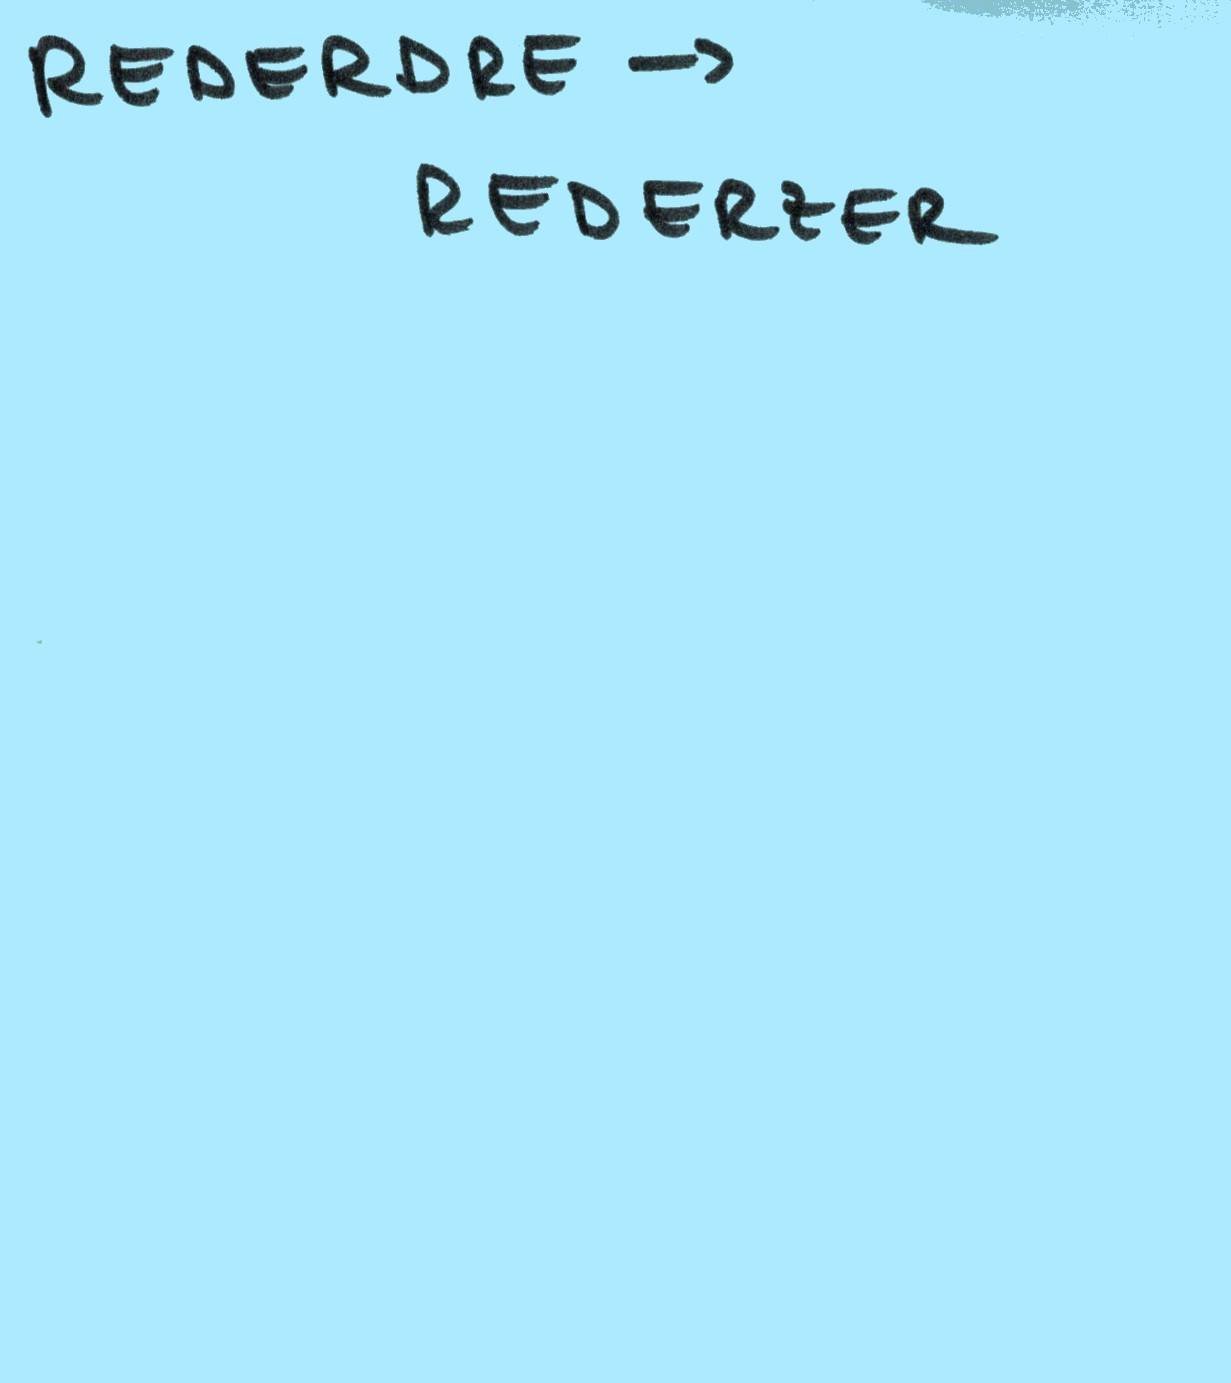 REDERDRE →
REDERZER